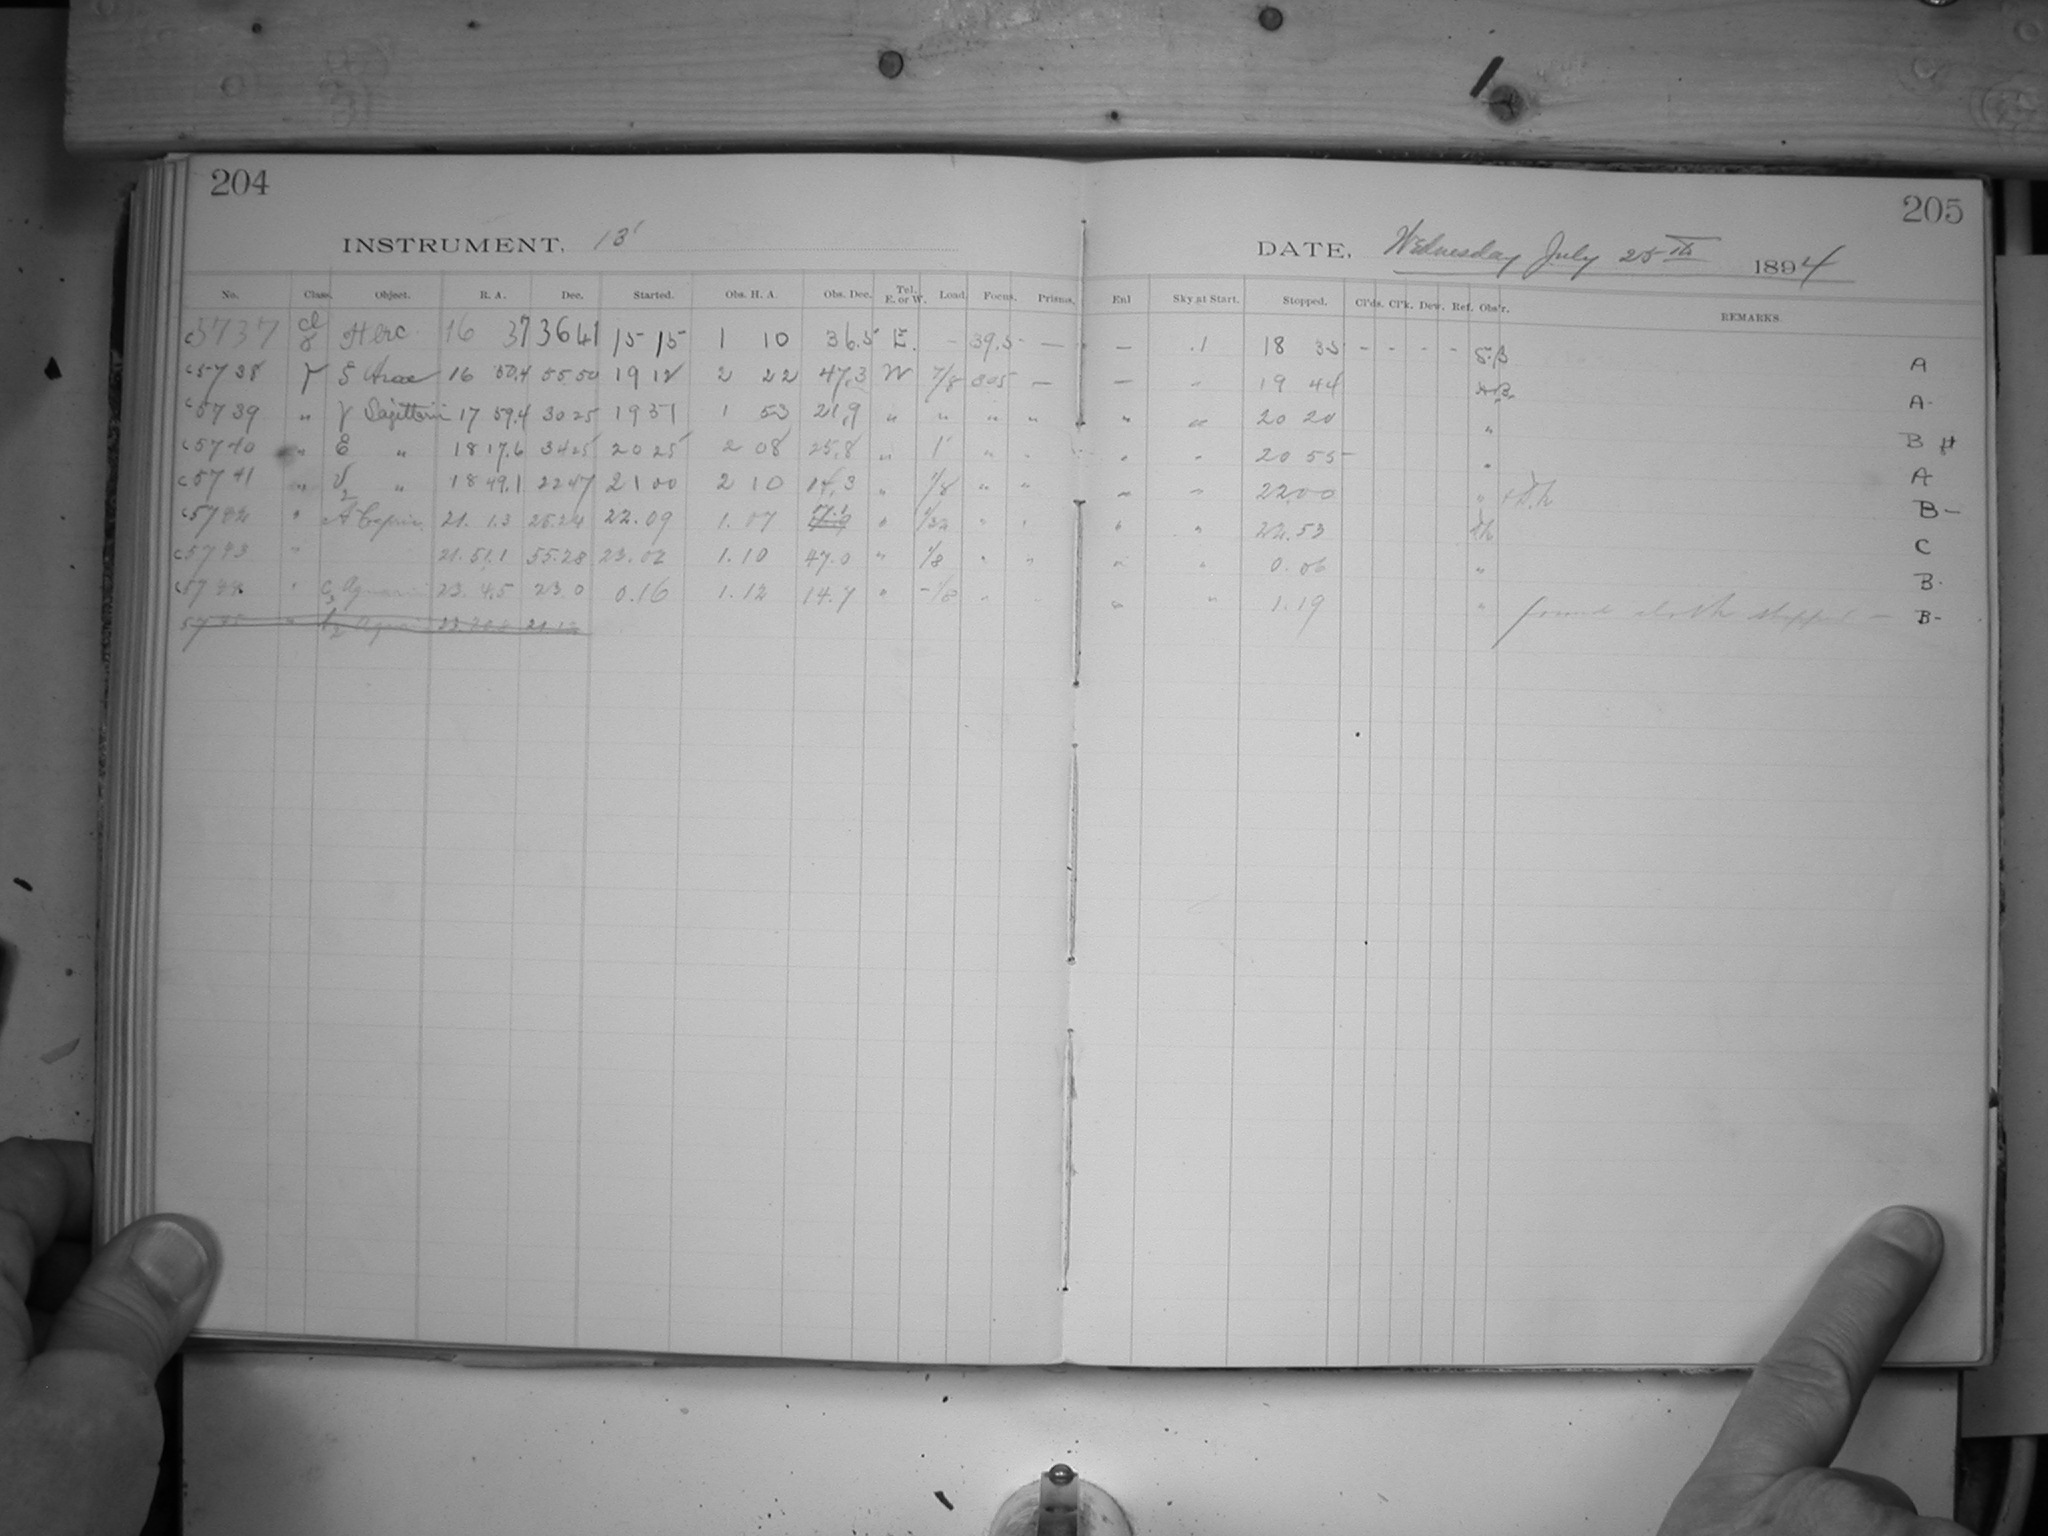 204
205
INSTRUMENT, 13'
DATE, Wednesday July 25th 1894
No. Class. Object. R. A. Dec. Started. Obs. H. A. Obs. Dec. Tel. E. or W. Load. Focus. Prisms. Enl Sky at Start. Stopped. Cl'ds. Cl'k. Dew. Ref. Obs'r. REMARKS.
c5737 cl 8 Herc 16 37 3641 15 15 1 10 36.5 E. - 39.5 — — .1 18 35 - - - - A
c5738 16 50.4 55 50 19 12 2 22 47.3 W 7/8 — — " 19 44 A
c5739 " γ Sagittarii 17 59.4 30 25 19 51 1 53 21,9 " " " " " " 20 20 " B
c5740 " E " 18 17.6 34 25 20 25 2 08 25.8 " 1 " " " " 20 55 " A
c5741 " " 18 49.1 22 47 21 00 2 10 " 1/8 " " " " 22 00 " B-
c5742 " A Capric. 21. 1.3 25.24 22.09 1. 07 " 1/32 " " " " 22.53 C
c5743 " 21. 51.1 55.28 23.02 1. 10 47.0 " 1/8 " " " " 0. 06 " B
c5744 " Aquarii 23. 4.5 23.0 0.16 1. 12 14.7 " " " " " 1. 19 " found clock stopped — B-